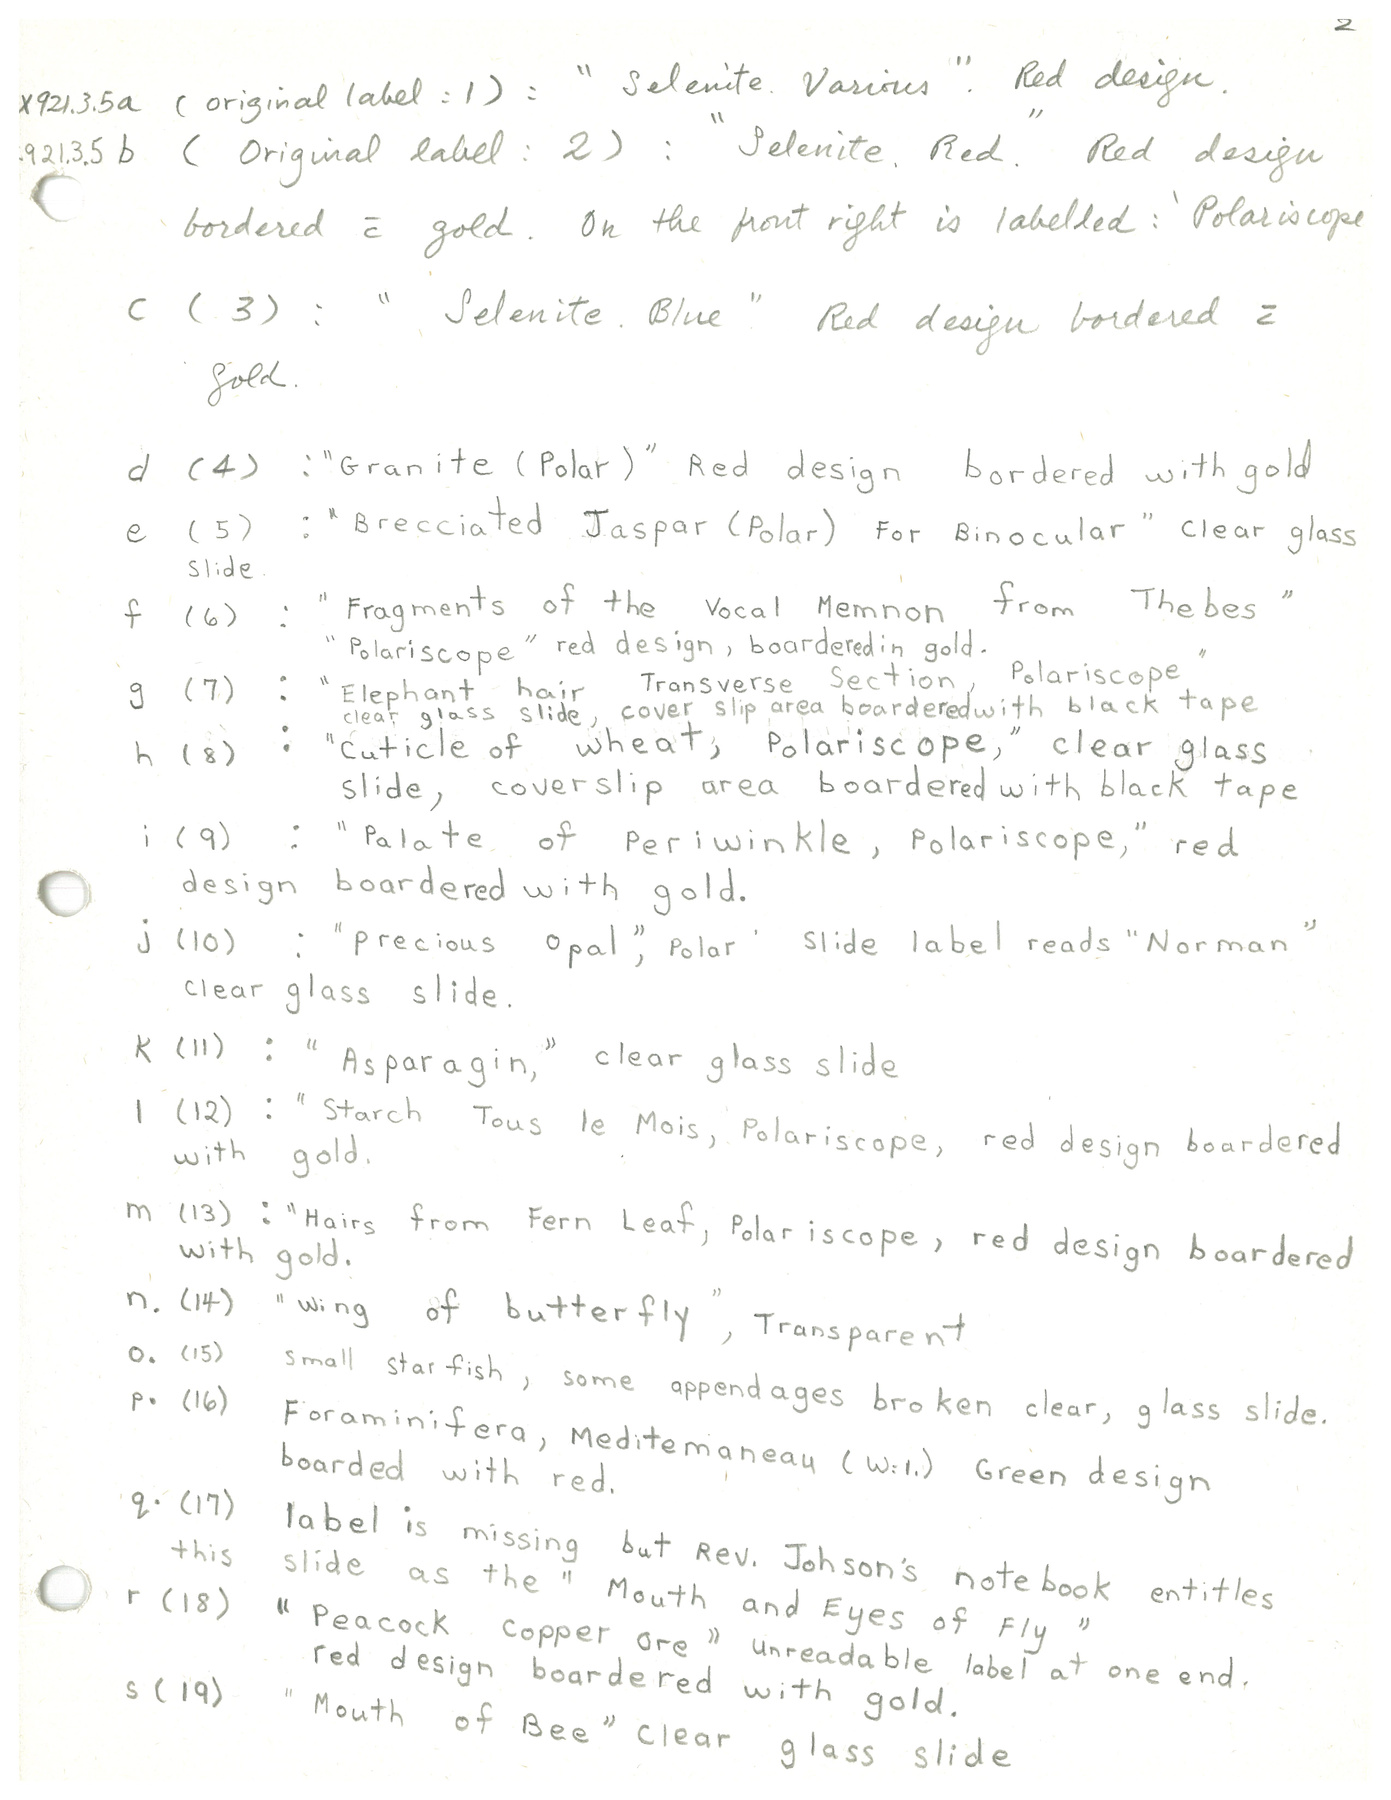 2
X921.3.5a (original label : 1) : " Selenite. Various ". Red design.
.921.3.5 b ( Original label : 2 ) : " Selenite. Red. " Red design
bordered c̄ gold. On the front right is labelled : ' Polariscope
c ( 3 ) : " Selenite. Blue " Red design bordered c̄
gold.
d (4) : "Granite (Polar)" Red design bordered with gold
e (5) : "Brecciated Jaspar (Polar) For Binocular" Clear glass
slide
f (6) : "Fragments of the Vocal Memnon from Thebes"
"Polariscope" red design, boardered in gold.
g (7) : "Elephant hair Transverse Section, Polariscope"
clear glass slide, cover slip area boardered with black tape
h (8) : "Cuticle of wheat, Polariscope," clear glass
slide, coverslip area boardered with black tape
i (9) : "Palate of Periwinkle, Polariscope," red
design boardered with gold.
j (10) : "precious opal", Polar ' Slide label reads "Norman"
clear glass slide.
K (11) : "Asparagin," clear glass slide
l (12) : "Starch Tous le Mois, Polariscope, red design boardered
with gold.
m (13) : "Hairs from Fern Leaf, Polariscope, red design boardered
with gold.
n. (14) "Wing of butterfly", Transparent
o. (15) small starfish, some appendages broken clear, glass slide.
p. (16) Foraminifera, Meditemaneau (W:1.) Green design
boarded with red.
q. (17) label is missing but Rev. Johson's notebook entitles
this slide as the "Mouth and Eyes of Fly"
r (18) "Peacock Copper Ore" unreadable label at one end.
red design boardered with gold.
s (19) "Mouth of Bee" Clear glass slide